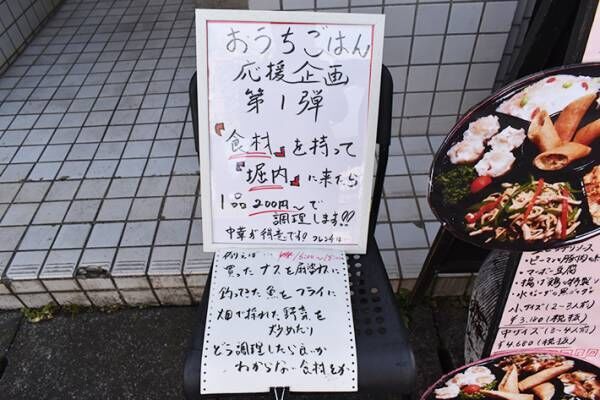 おうちごはん
応援企画
第1弾
『食材』を持って
『堀内』に来たら
1品200円〜で
調理します!!
中華が得意です!!
例えば
買ったナスを麻婆に
釣ってきた魚をフライに
畑で採れた野菜を
炒めたり
どう調理したら良いか
わからない食材とか
ピーマンと豚肉の
・マーボー豆腐
小サイズ(2〜3人前)
¥3,180(税抜)
中サイズ(3〜4人前)
¥4,680(税抜)